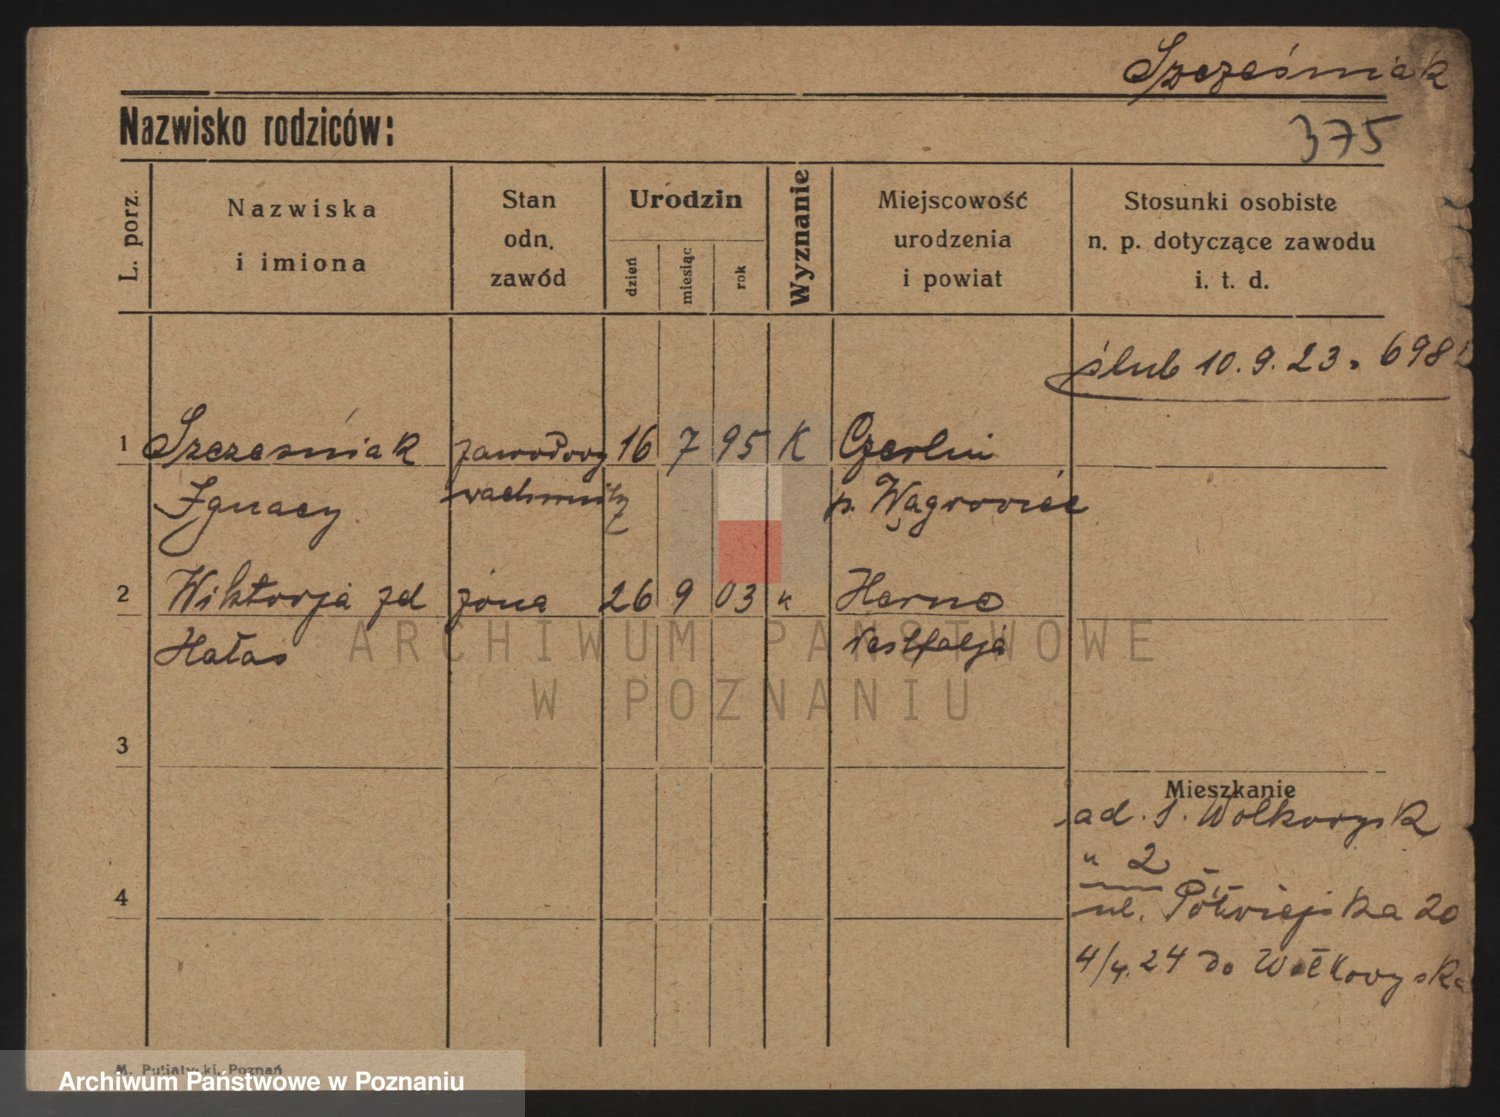 Szcześniak
Nazwisko rodziców:
375
L. porz.
Nazwiska
i imiona
Stan
odn.
zawód
Urodzin
dzień
miesiąc
rok
Wyznanie
Miejscowość
urodzenia
i powiat
Stosunki osobiste
n. p. dotyczące zawodu
i. t. d.
ślub 10.9.23. 698
1 Szcześniak zawodowy 16 7 95 K Czerlin
Ignacy wachmistrz p. Wągrowiec
2 Wiktorja zd żona 26 9 03 " Herne
Hałas Westfalja
ARCHIWUM PAŃSTWOWE
W POZNANIU
3
Mieszkanie
ad. 1. Wołkowysk
" 2
4
ul. Półwiejska 20
4/4.24 do Wołkowyska
M. Putiatycki, Poznań
Archiwum Państwowe w Poznaniu